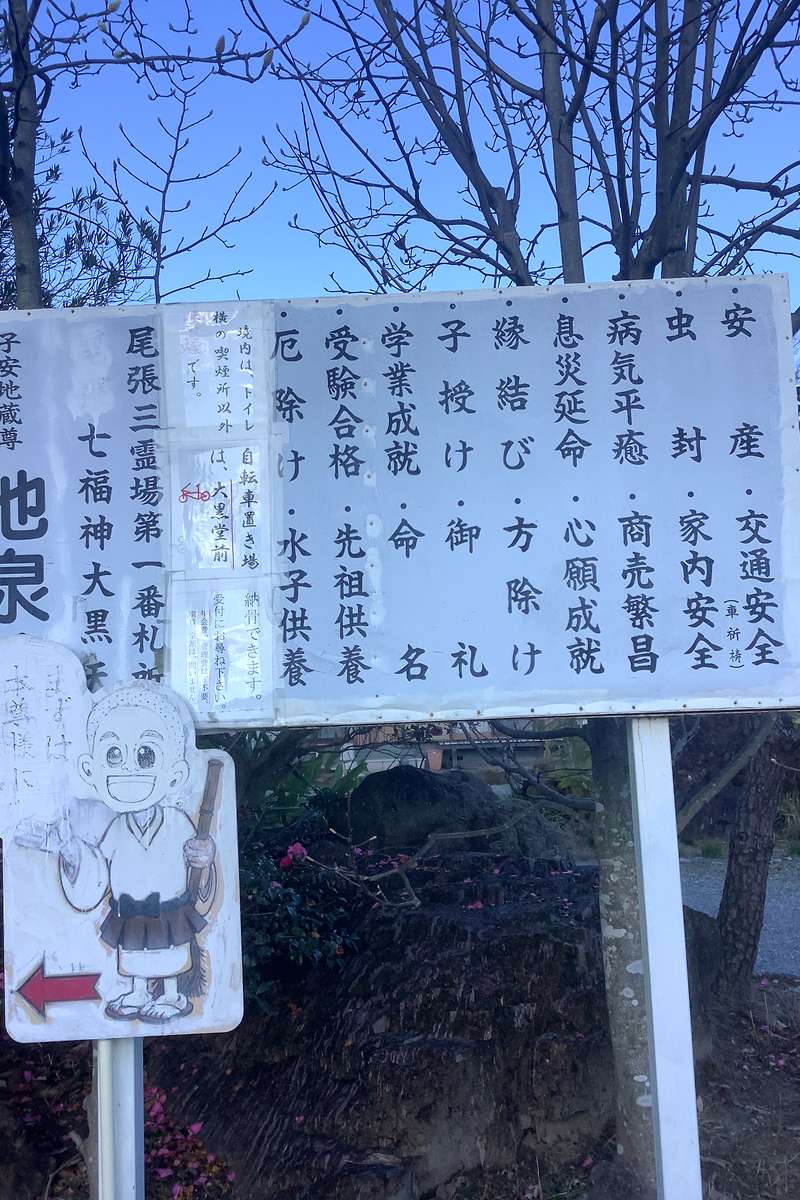 安産・交通安全
(車祈祷)
虫封・家内安全
病気平癒・商売繁昌
息災延命・心願成就
縁結び・方除け
子授け・御礼
学業成就・命名
・受験合格・先祖供養
・厄除け・水子供養
境内は、トイレ
横の喫煙所以外
です。
自転車置き場
は、大黒堂前
納骨できます。
受付にお尋ね下さい。
尾張三霊場第一番札所
七福神大黒
子安地蔵尊
地泉
まずは
本尊様に